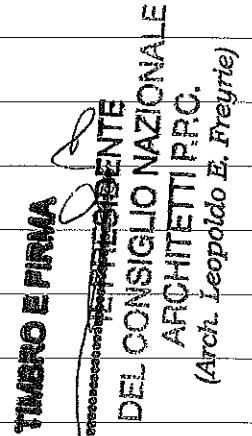 TIMBRO E FIRMA
IL PRESIDENTE
DEL CONSIGLIO NAZIONALE
ARCHITETTI P.P.C.
(Arch. Leopoldo E. Freyrie)